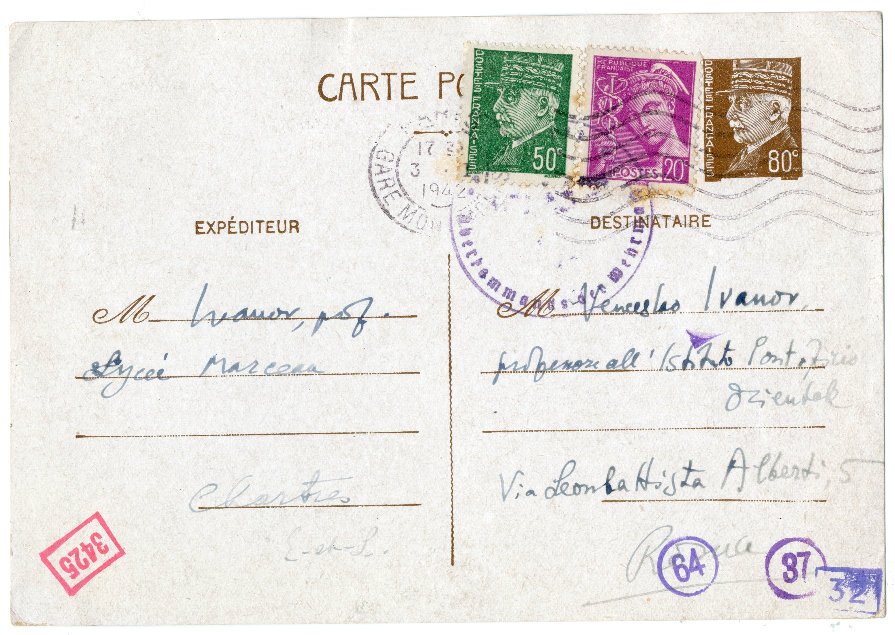 CARTE PO
POSTES FRANÇAISES
50c
REPUBLIQUE FRANÇAISE
20c
POSTES
POSTES FRANÇAISES
80c
17
3
1942
GARE MON
Oberkommando der Wehrma
EXPÉDITEUR
M Ivanov, prof.
Lycée Marceau
Chartres
E-et-L.
DESTINATAIRE
M Venceslao Ivanov,
professore all' Istituto Pontificio
Orientale
Via Leon Battista Alberti 5
Roma
3425
64
37
32